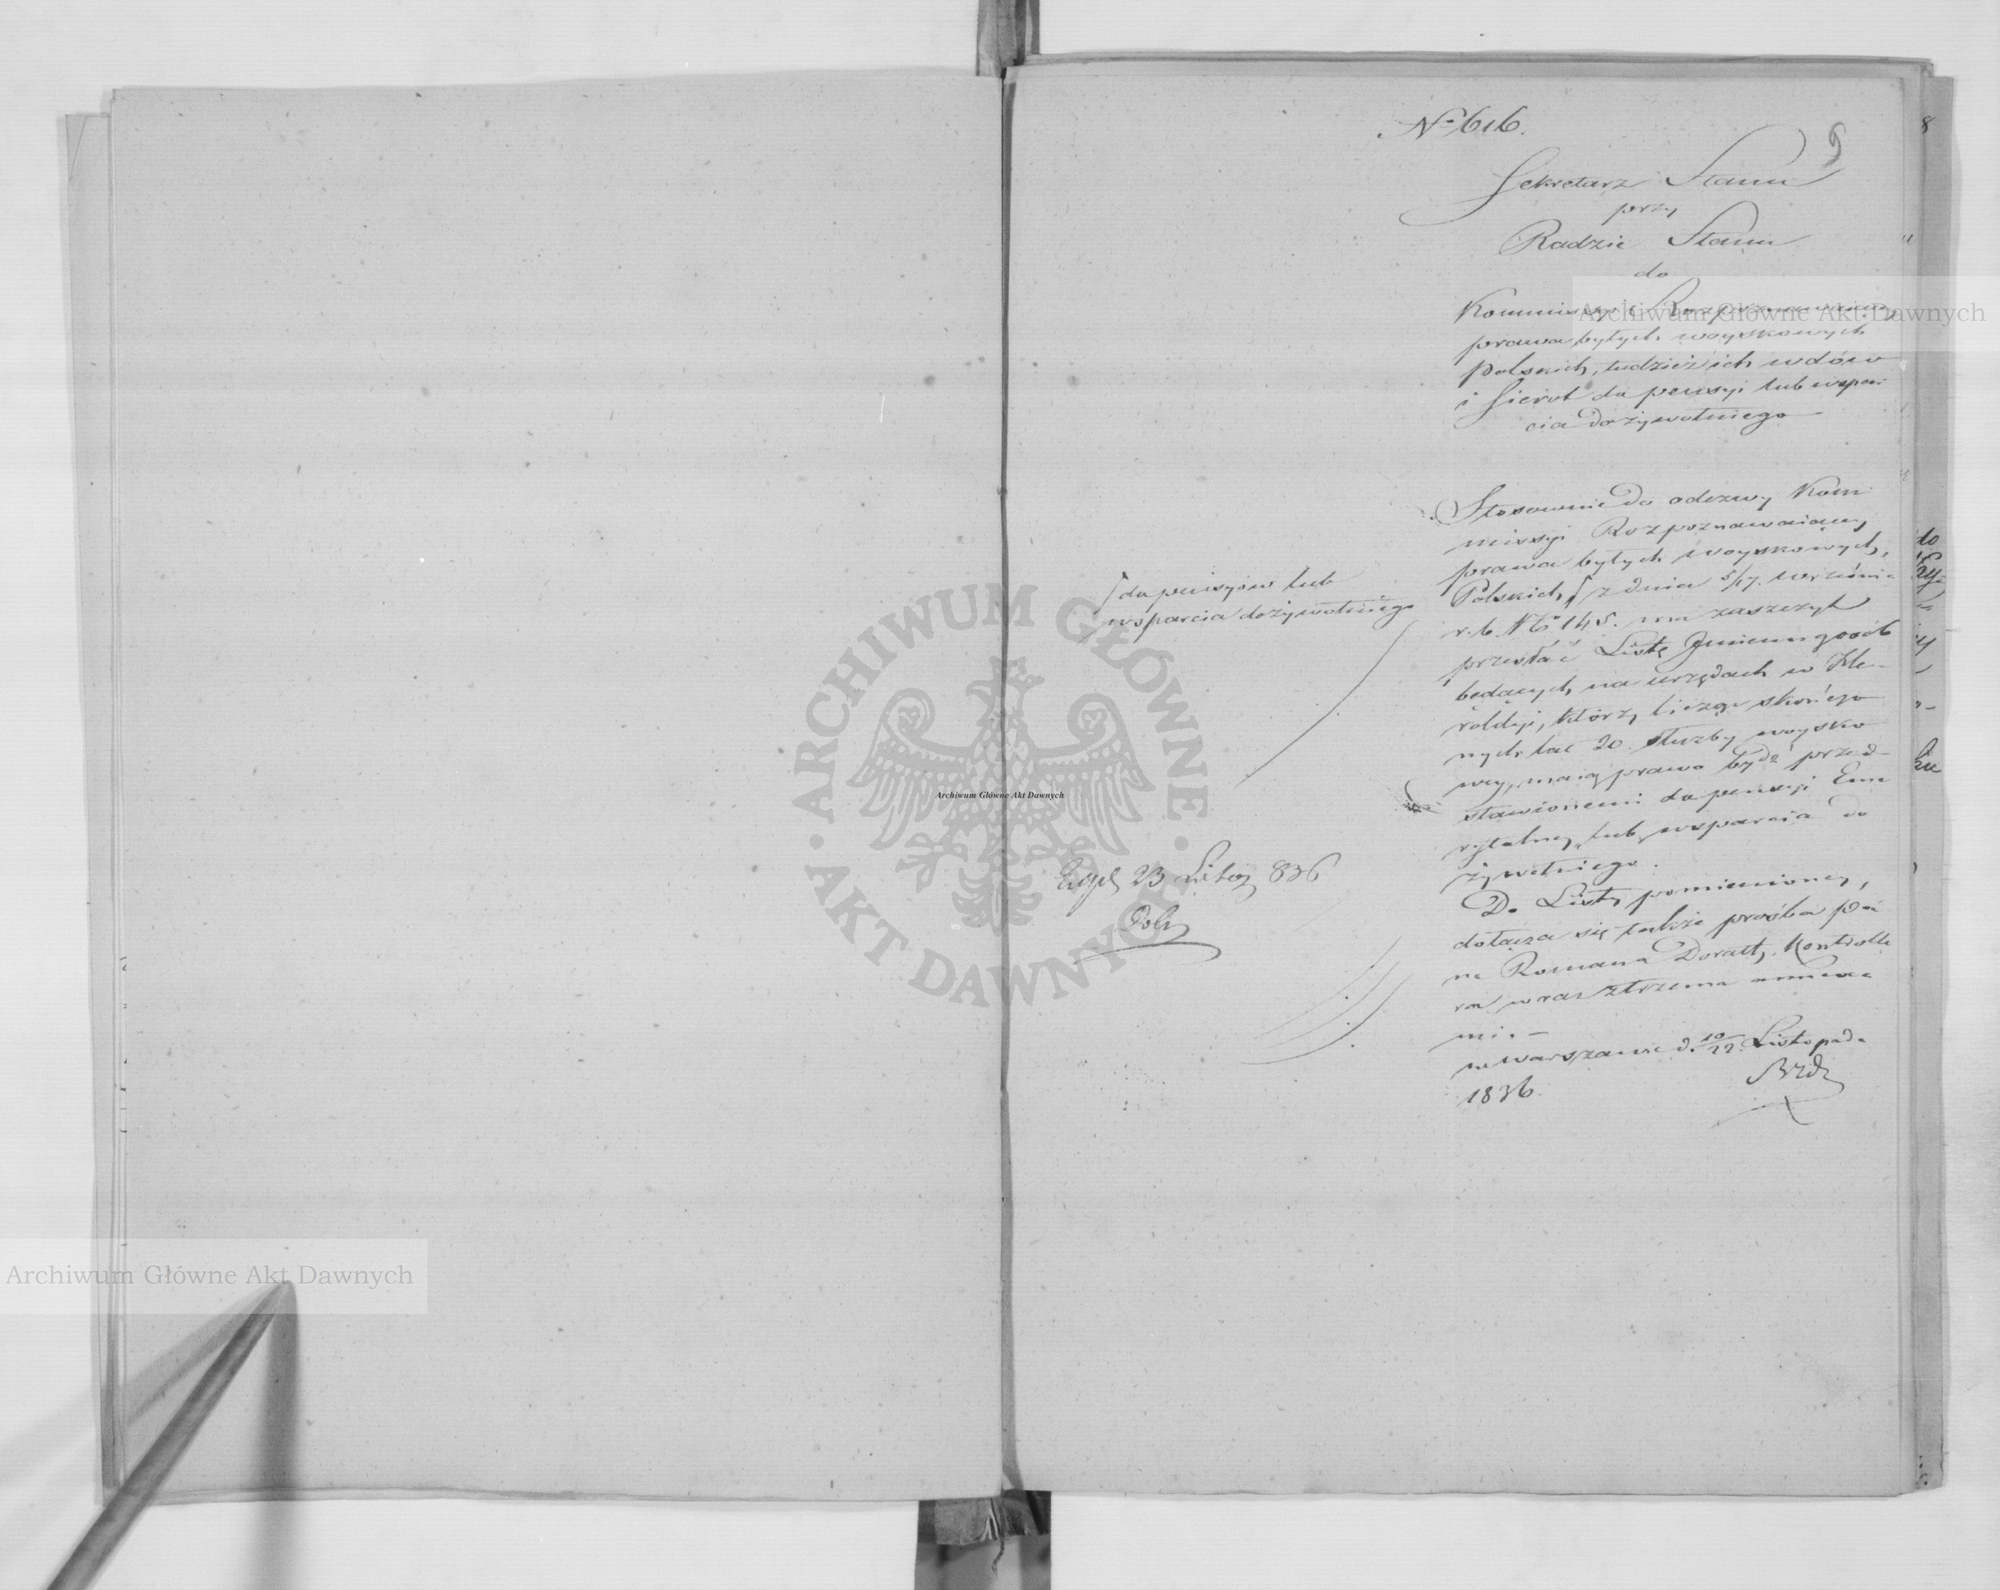 № 616.
9
Sekretarz Stanu
przy
Radzie Stanu
do
Kommissyi Rozpoznawaiącey
prawa byłych woyskowych
Polskich, tudzież ich wdów
i Sierot do pensyi lub wspar
cia dożywotniego
Stosownie do odezwy Kom
missyi Rozpoznawaiącey
prawa byłych woyskowych,
Polskich, z dnia 5/17 września
r. b. № 145. ma zaszczyt
przesłać Listę Imienną osób
będących na urzędach w He-
roldyi, którzy licząc skończo
nych lat 20 służby woysko
wey, maią prawo bydź przed-
stawionemi do pensyi Eme
rytalney lub wsparcia do
żywotniego.
Do Listy pomienioney,
dołącza się także prośba Pa
na Romana Doratt, Kontrolle
ra wraz z trzema annexa
mi. –
w Warszawie d. 10/22 Listopada
1836.
do pensyów lub
wsparcia dożywotniego
Exp. 23 Listop 836
Archiwum Główne Akt Dawnych
Archiwum Główne Akt Dawnych
Archiwum Główne Akt Dawnych
ARCHIWUM GŁÓWNE · AKT DAWNYCH ·